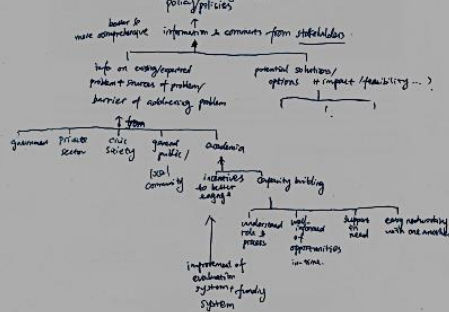 policy/policies
better &
more comprehensive
information & comments from stakeholders
info on existing/expected
problem + sources of problem/
barrier of addressing problem
potential solutions/
options + impact/feasibility ...?
from
government
private
sector
civic
society
general
public/
local
community
academia
incentives
to better
engage
capacity building
understand
role &
process
well-
informed
of
opportunities
in-time
support
in
need
easy networking
with one another
improvement of
evaluation
system + funding
system